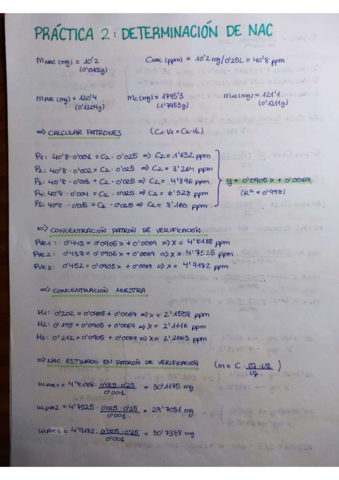 PRÁCTICA 2: DETERMINACIÓN DE NAC
M NAC (mg) = 10'2 (0'0102g)
CNAC (ppm) = 10'2 mg/0'25L = 40'8 ppm
MPVR (mg) = 120'4 (0'1204g)
Mc (mg) = 1795'3 (1'7953g)
Mm (mg) = 121'1 (0'1211g)
⇒ CALCULAR PATRONES (C1·V1 = C2·V2)
P1: 40'8 · 0'001 = C2 · 0'025 ⇒ C2 = 1'632 ppm
P2: 40'8 · 0'002 = C2 · 0'025 ⇒ C2 = 3'264 ppm
P3: 40'8 · 0'003 = C2 · 0'025 ⇒ C2 = 4'896 ppm
P4: 40'8 · 0'004 = C2 · 0'025 ⇒ C2 = 6'528 ppm
P5: 40'8 · 0'005 = C2 · 0'025 ⇒ C2 = 8'160 ppm
y = 0'0905x + 0'0069
(R² = 0'998)
⇒ CONCENTRACIÓN PATRÓN DE VERIFICACIÓN
PVR1 : 0'443 = 0'0905x + 0'0069 ⇒ x = 4'8188 ppm
PVR2 : 0'437 = 0'0905x + 0'0069 ⇒ x = 4'7525 ppm
PVR3 : 0'452 = 0'0905x + 0'0069 ⇒ x = 4'9182 ppm
⇒ CONCENTRACIÓN MUESTRA
M1: 0'202 = 0'0905x + 0'0069 ⇒ x = 2'1558 ppm
M2: 0'198 = 0'0905x + 0'0069 ⇒ x = 2'1116 ppm
M3: 0'212 = 0'0905x + 0'0069 ⇒ x = 2'2663 ppm
⇒ NAC ESTIMADO EN PATRÓN DE VERIFICACIÓN
(m = C ·
mPVR1 = 4'8188 · 0'025 · 0'25 / 0'001 = 30'1175 mg
mPVR2 = 4'7525 · 0'025 · 0'25 / 0'001 = 29'7031 mg
mPVR3 = 4'9182 · 0'025 · 0'25 / 0'001 = 30'7388 mg